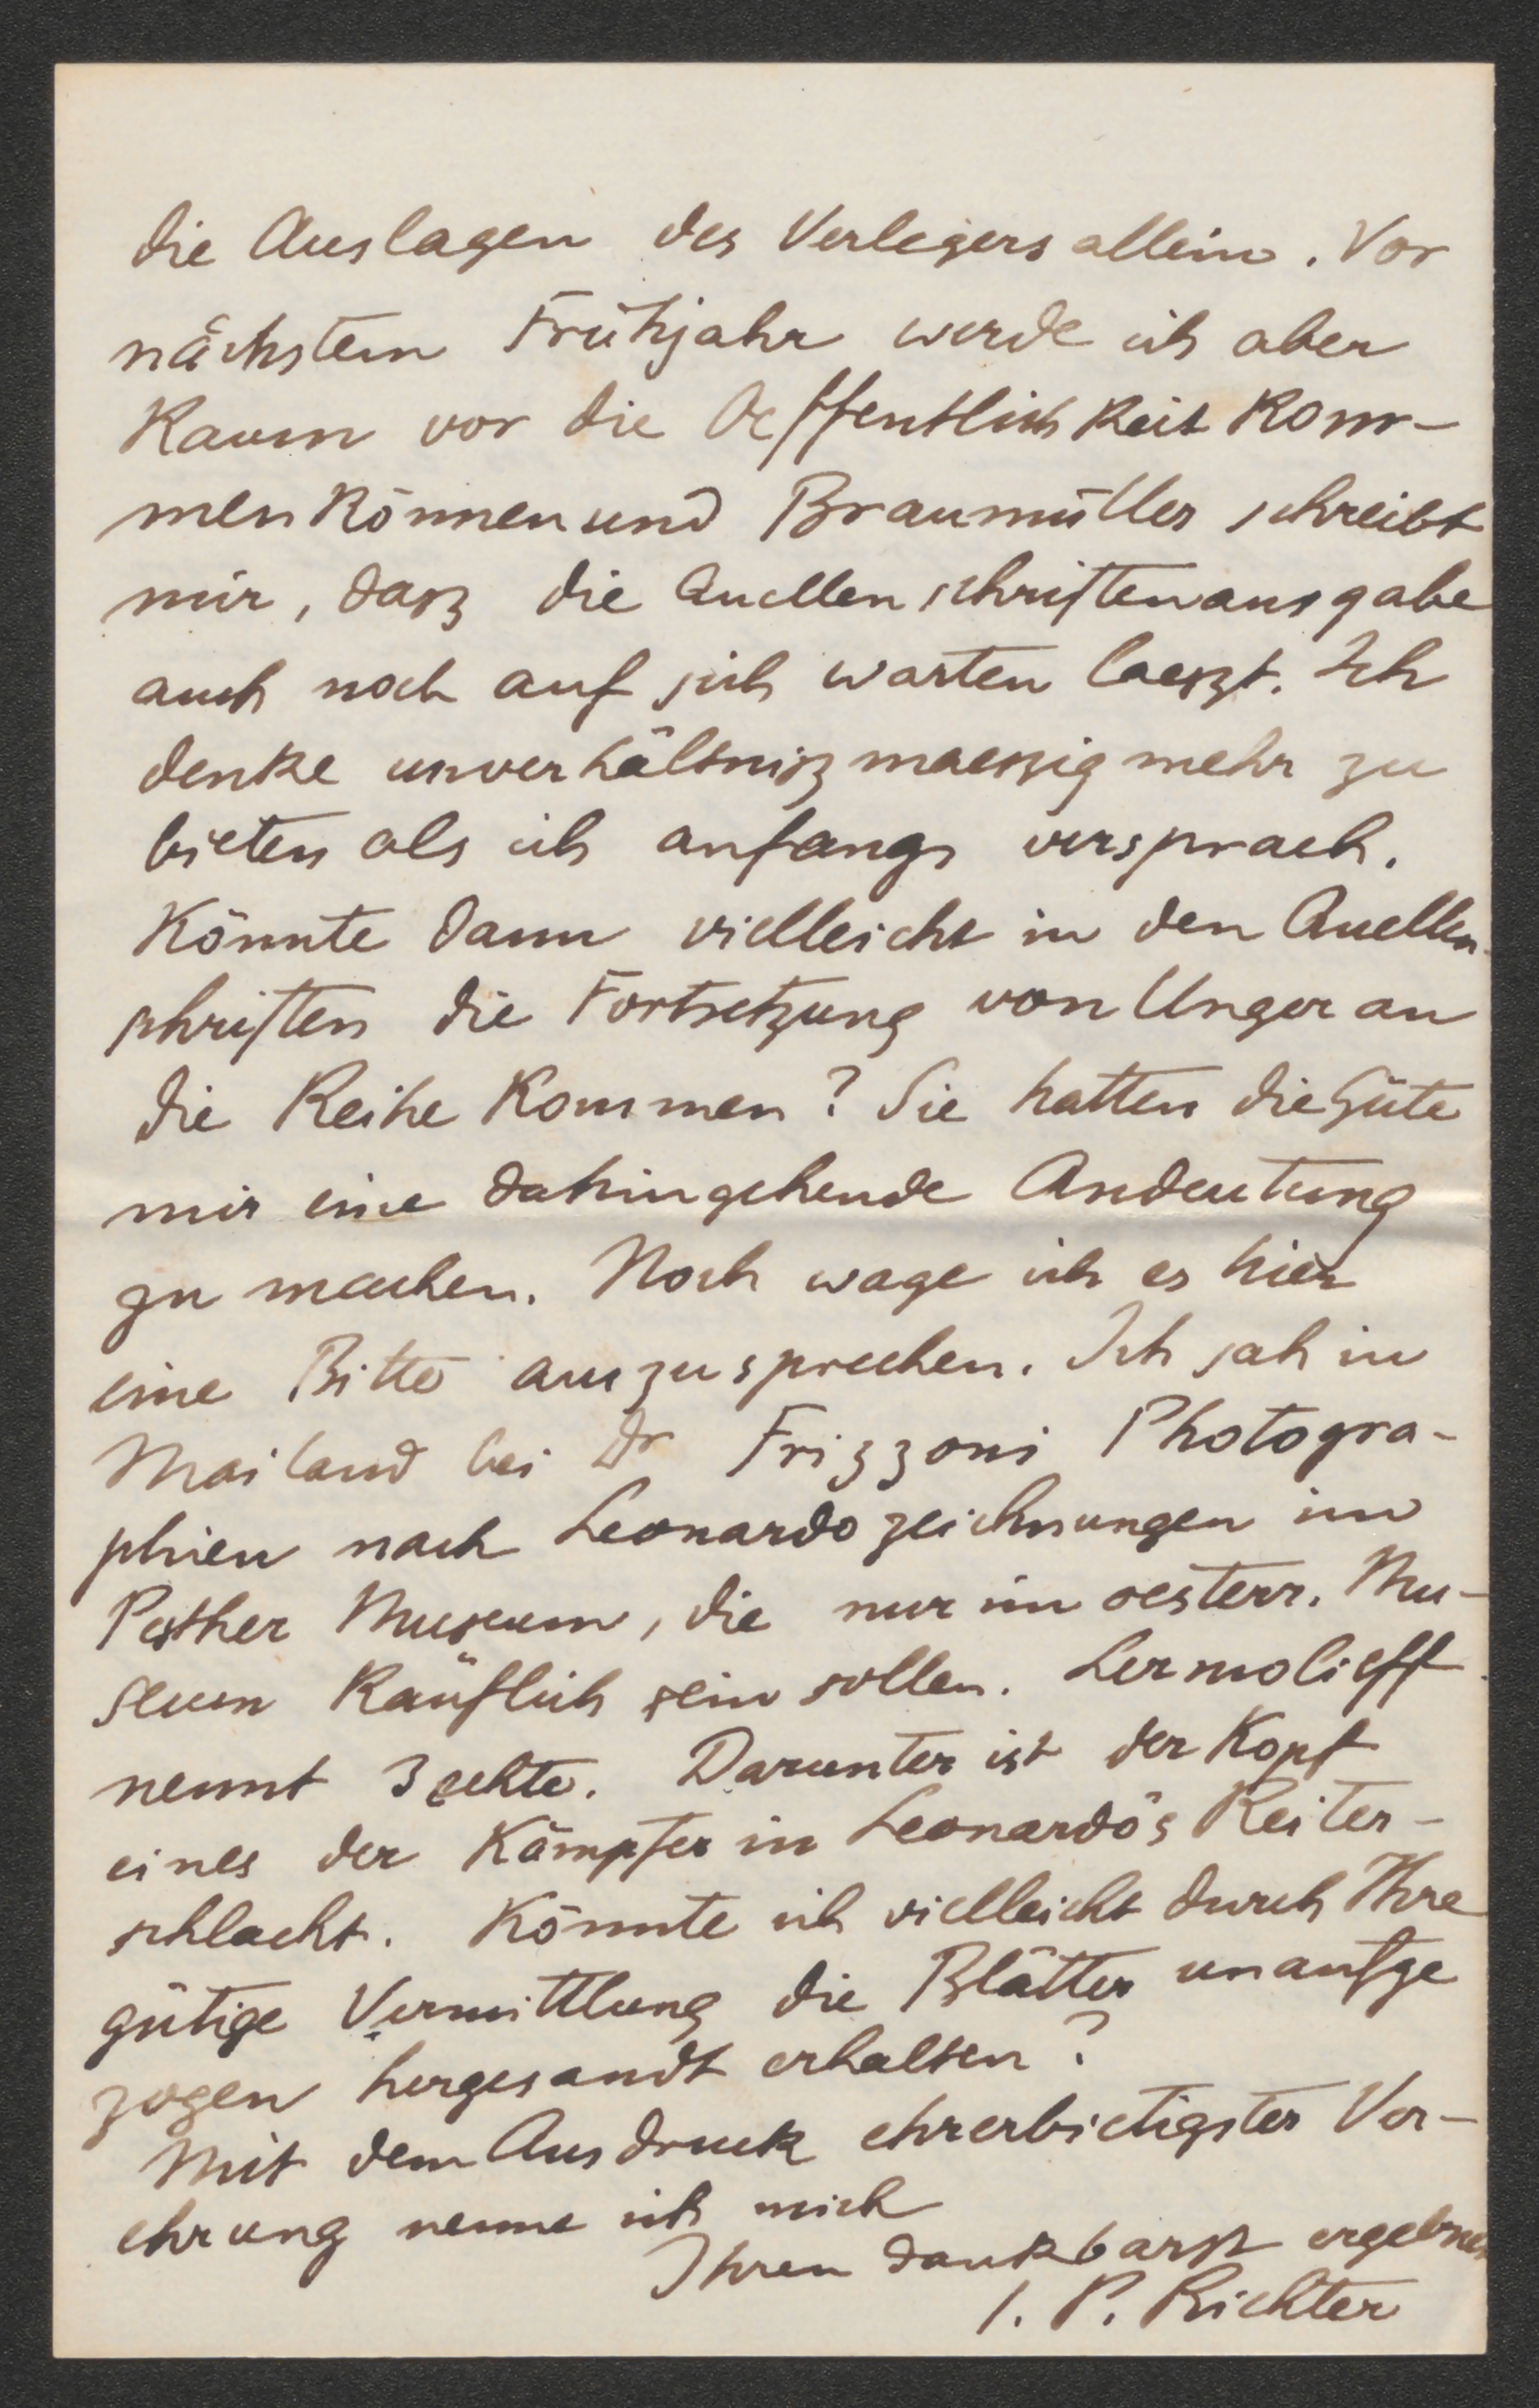 die Auslagen des Verlegers allein. Vor
nächstem Frühjahr werde ich aber
kaum vor die Oeffentlichkeit kom-
men können und Braumüller schreibt
mir, dasz die Quellenschriftenausgabe
auch noch auf sich warten laeszt. Ich
denke unverhältniszmaeszig mehr zu
bieten als ich anfangs versprach.
Könnte dann vielleicht in den Quellen-
schriften die Fortsetzung von Unger an
die Reihe kommen? Sie hatten die Güte
mir eine dahingehende Andeutung
zu machen. Noch wage ich es hier
eine Bitte auszusprechen. Ich sah in
Mailand bei Dr Frizzoni Photogra-
phien nach Leonardozeichnungen im
Pesther Museum, die nur im oesterr. Mu-
seum käuflich sein sollen. Lermolieff
nennt 3 echte. Darunter ist der Kopf
eines der Kämpfer in Leonardo's Reiter-
schlacht. Könnte ich vielleicht durch Ihre
gütige Vermittlung die Blätter unaufge
zogen hergesandt erhalten?
Mit dem Ausdruck ehrerbietigster Ver-
ehrung nenne ich mich
Ihren dankbarst ergebnen
J. P. Richter